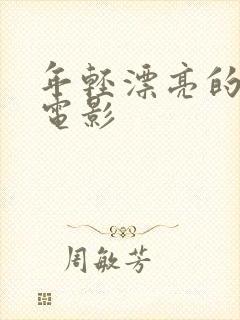 年輕漂亮的
電影
周敏芳